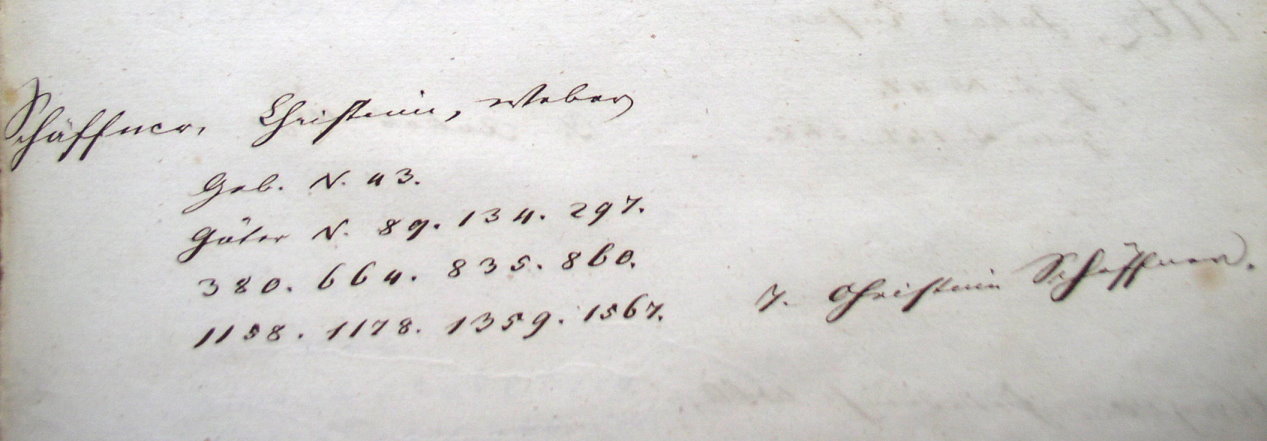 Schäffner, Christian, Weber
Geb. N. 43.
Güter N. 89. 134. 297.
380. 664. 835. 860.
1158. 1178. 1359. 1567.
7. Christian Schäffner.